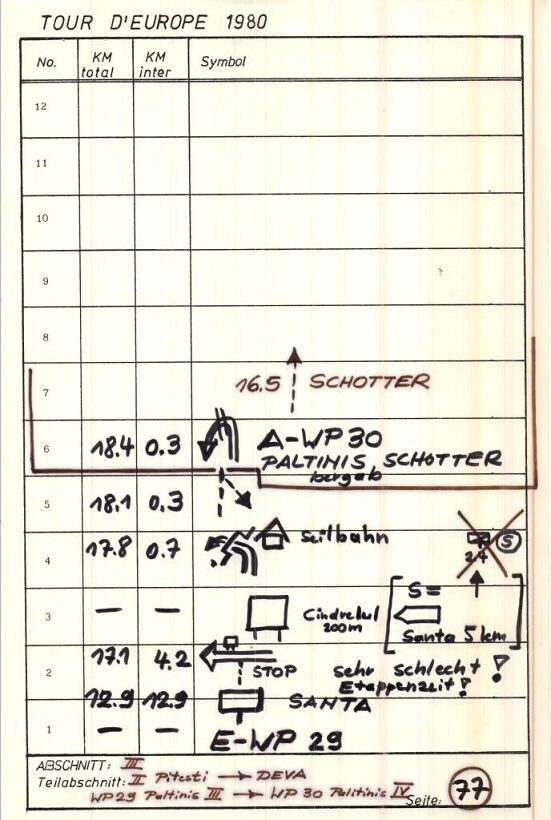 TOUR D'EUROPE 1980
No. KM total KM inter Symbol
12
11
10
9
8
7 16.5 SCHOTTER
6 18.4 0.3 A-WP 30
PALTINIS SCHOTTER
bergab
5 18.1 0.3
4 17.8 0.7 Seilbahn S
24
3 — — Cindrelul
200m
S =
Santa 5 km
2 17.1 4.2 STOP sehr schlecht!
Etappenzeit!
12.9 12.9 SANTA
1 — — E-WP 29
ABSCHNITT: III
Teilabschnitt: II Pitesti → DEVA
WP 29 Paltinis III → WP 30 Paltinis IV
Seite: 77